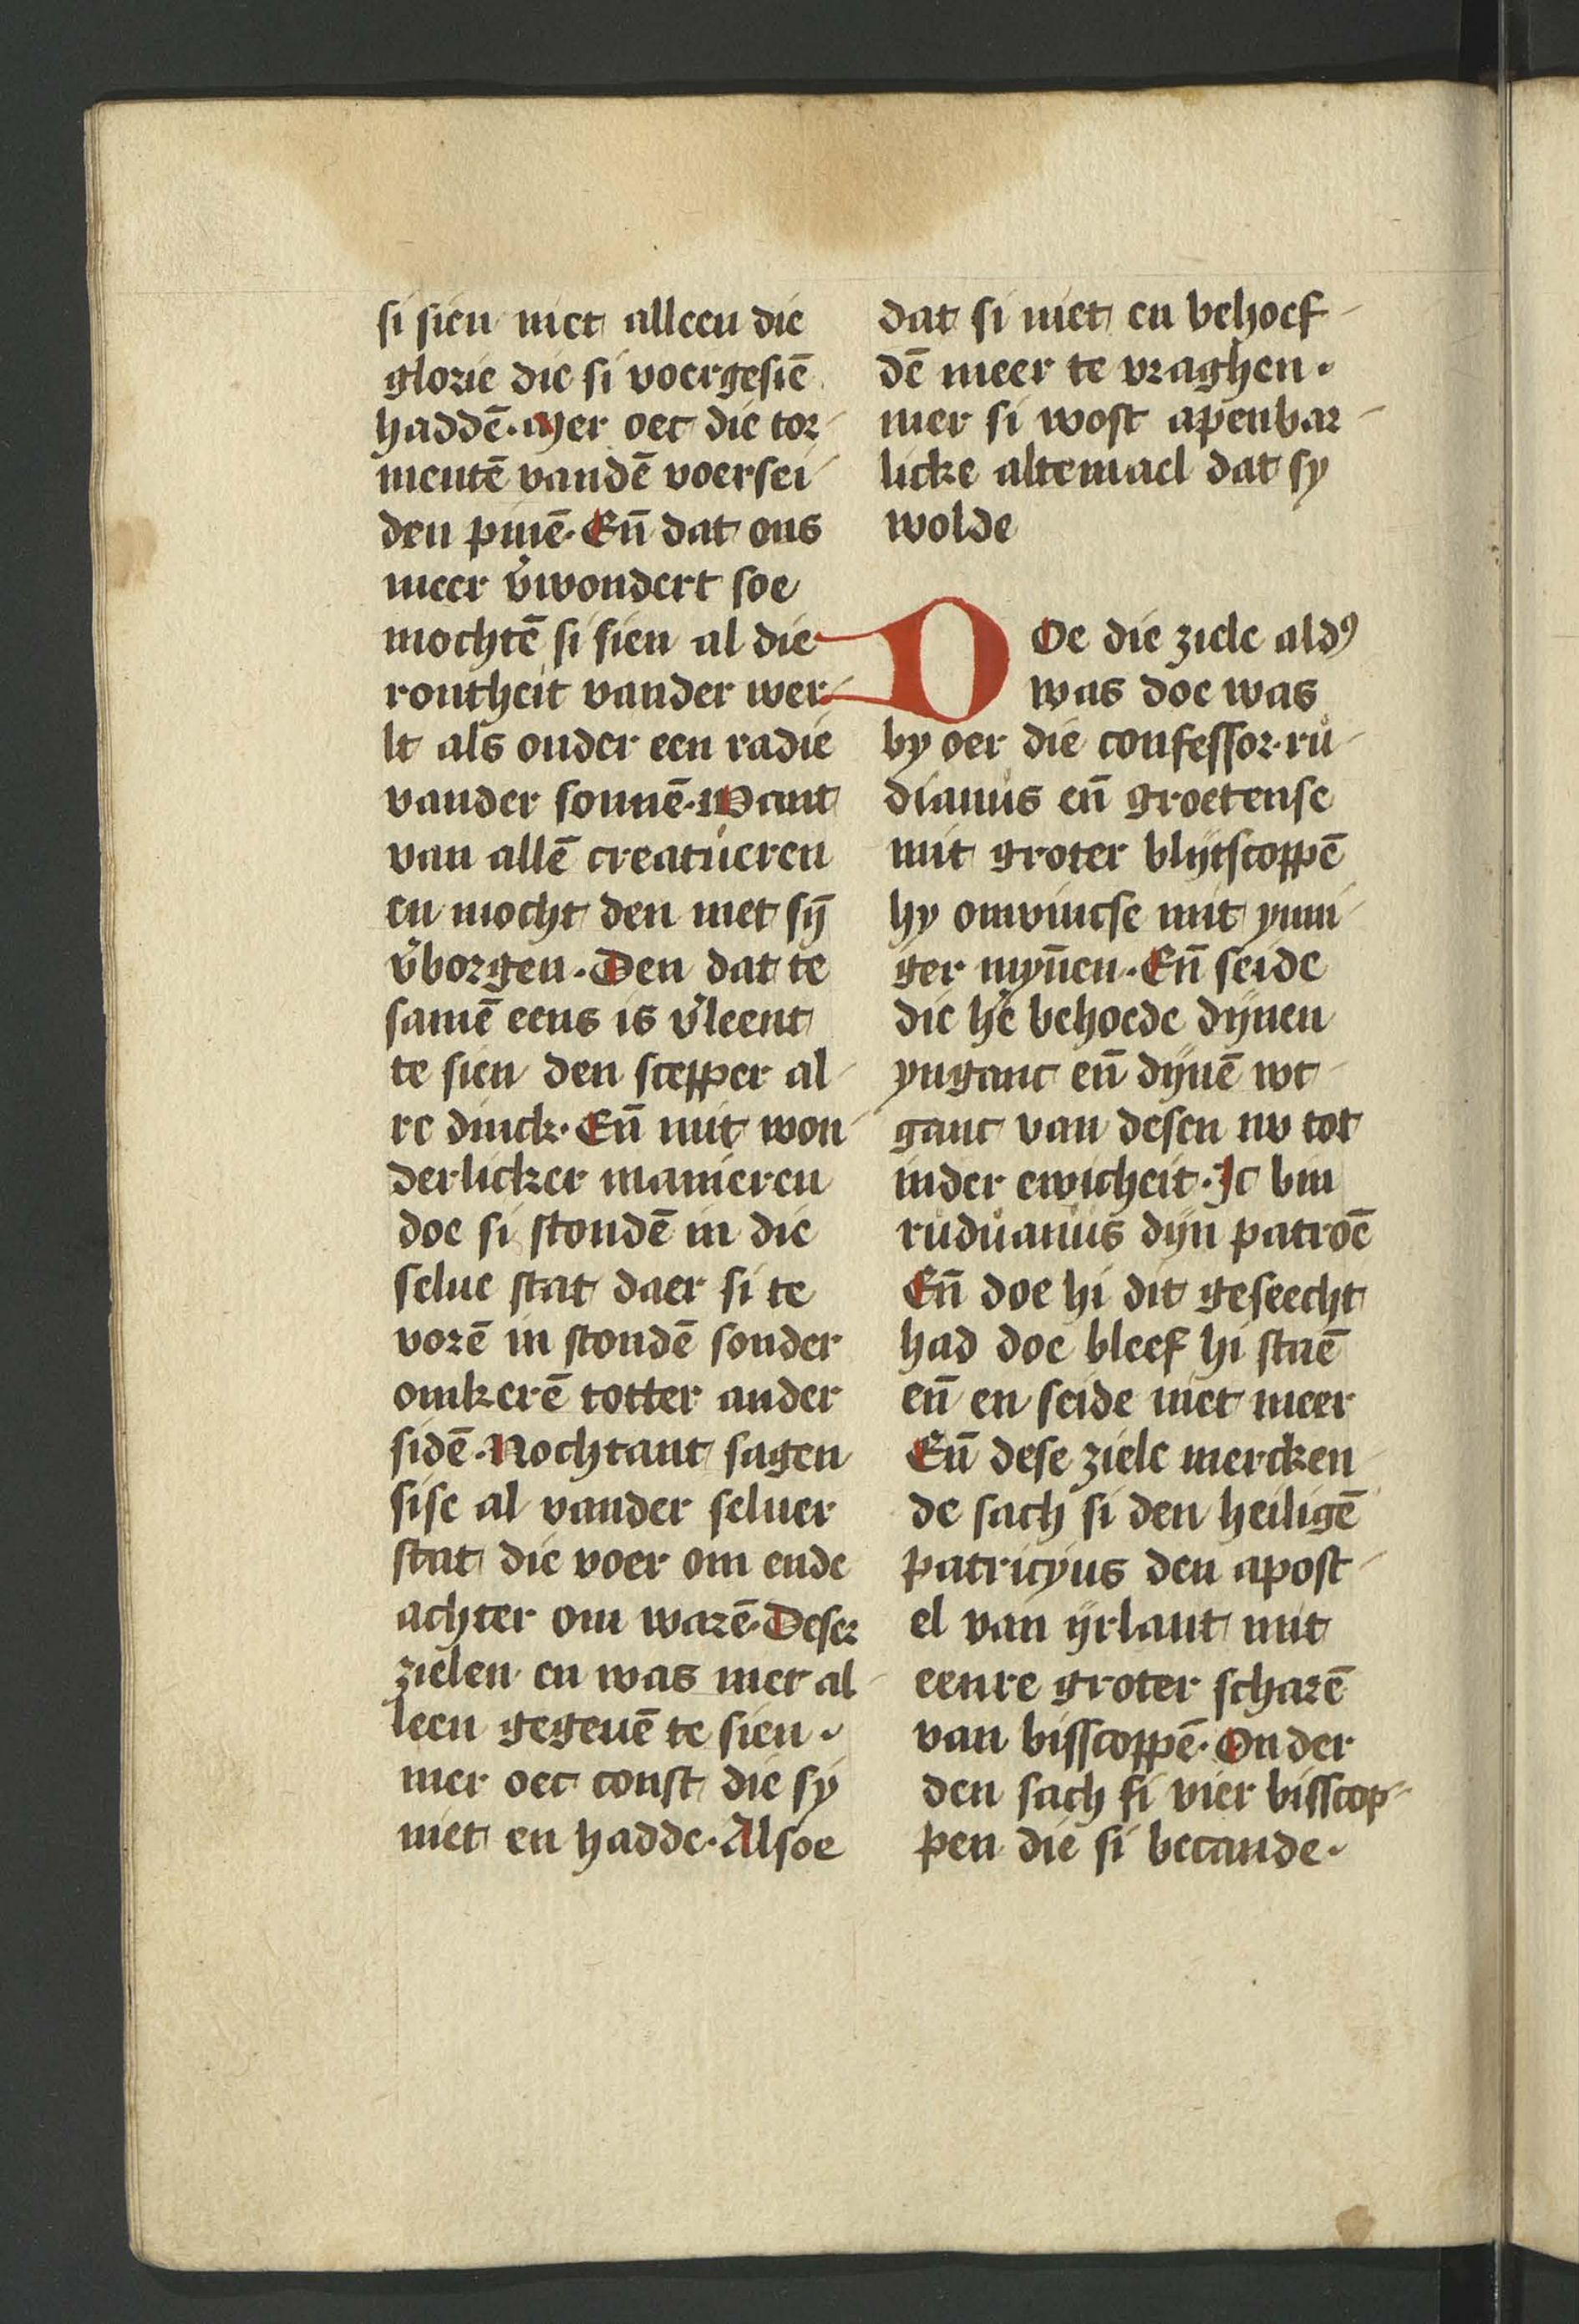 si sien niet alleen die
glorie die si voergesiē
haddē. Mer oec die tor-
mentē vandē voersei-
den pinē. Eñ dat ons
meer v̄wondert soe
mochtē si sien al die
rontheit vander wer-
lt als onder een radie
vander sonnē. Want
van allē creatueren
en mocht den niet sȳ
v̄borgen. Den dat te
samē eens is v̄leent
te sien den scepper al-
re dinck. Eñ mit won-
derlicker manieren
doe si stondē in die
selue stat daer si te
vorē in stondē sonder
omkerē totter ander
sidē. Nochtant sagen
sise al vander seluer
stat die voer om ende
achter om warē. Deser
zielen en was niet al-
leen gegeuē te sien.
mer oec const die sy
niet en hadde. Alsoe
dat si niet en behoef-
dē meer te vraghen.
mer si wost apenbar-
licke altemael dat sy
wolde
DOe die ziele aldꝰ
was doe was
by oer die confessor. ru-
dianus eñ groetense
mit groter blijtscoppē
hy omvincse mit ynni-
ger mȳnen. Eñ seide
die hē behoede dijnen
ynganc eñ dijnē wt-
ganc van desen nv tot
inder ewicheit. Ic bin
ruduanus dijn patroē
Eñ doe hi dit geseecht
had doe bleef hi staē
eñ en seide niet meer
Eñ dese ziele mercken-
de sach si den heiligē
patricyus den apost-
el van ijrlant mit
eenre groter scharē
van bisscoppē. Onder
den sach si vier bisscop-
pen die si becande.